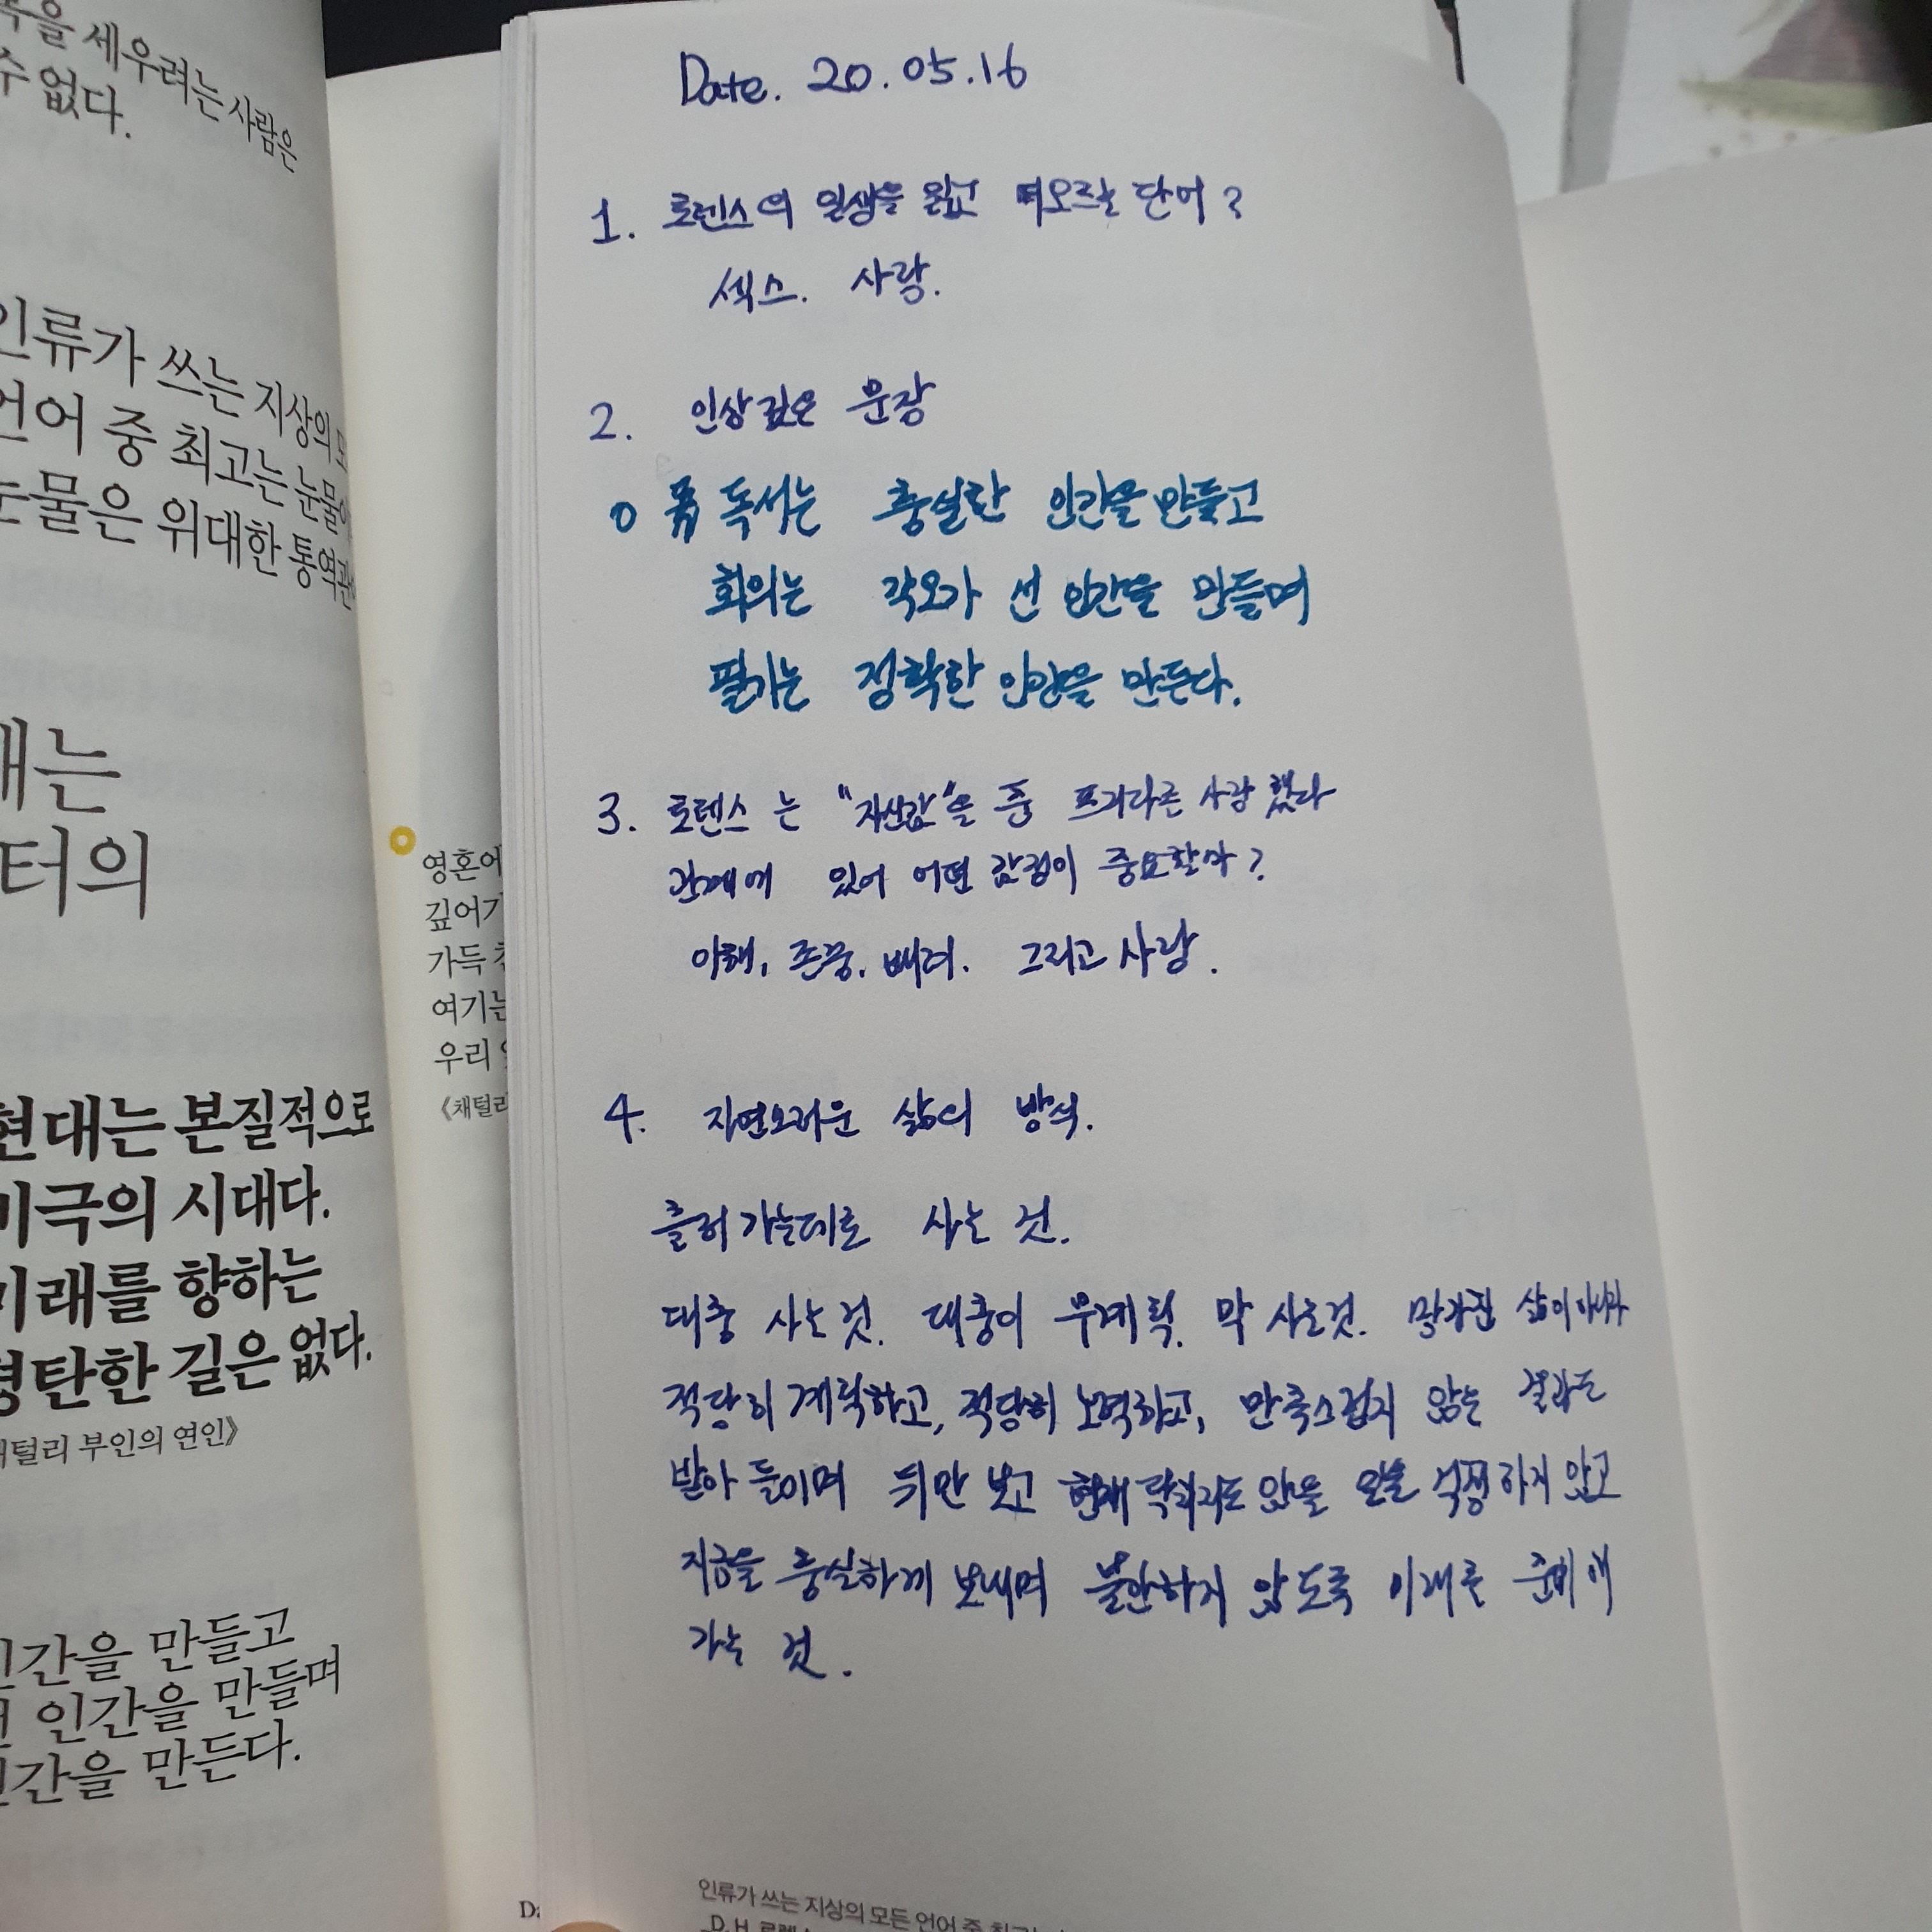 을 세우려는 사람은
수 없다.
인류가 쓰는 지상의
언어 중 최고는
눈물은 위대한
는
터의
현대는 본질적으로
비극의 시대다.
미래를 향하는
평탄한 길은 없다.
채털리 부인의 연인》
인간을 만들고
인간을 만들며
인간을 만든다.
영혼에
깊어
가득
여기는
우리
《채털리
Date. 20.05.16
1. 로렌스의 일생을 읽고 떠오르는 단어?
섹스. 사랑.
2. 인상 깊은 문장
독서는 충실한 인간을 만들고
회의는 각오가 선 인간을 만들며
필기는 정확한 인간을 만든다.
3. 로렌스 는 " " 프리다를 사랑했다
관계에 있어 어떤 감정이 중요할까?
이해, 존중, 배려. 그리고 사랑.
4. 자연스러운 삶의 방식.
흘러가는대로 사는 것.
대충 사는 것. 대충이 무계획. 막 사는것. 망가진 삶이 아니라
적당히 계획하고, 적당히 노력하고, 만족스럽지 않는 결과도
받아 들이며 뒤만 보고 현재 닥치지도 않을 일을 걱정하지 않고
지금을 충실하게 보내며 불안하지 않도록 미래를 준비해
가는 것.
인류가 쓰는 지상의 모든 언어 중
D. H. 로렌스